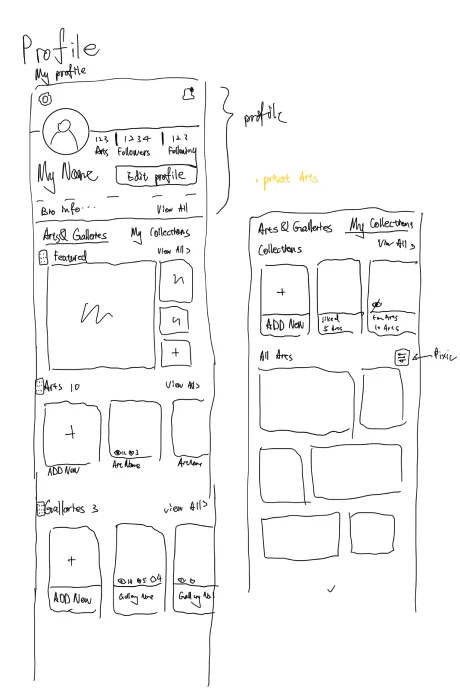 Profile
My profile
profile
123 1234 123
Arts Followers Following
My Name Edit profile
Bio Info... View All
Arts& Galleries My Collections
Featured View All >
Arts 10 View All>
ADD New
3
Art Name
Galleries 3 view All>
ADD New
Gallery Name
Arts & Galleries My Collections
Collections View All >
ADD New
Liked
5 Arts
Fav Arts
10 Arts
All Arts